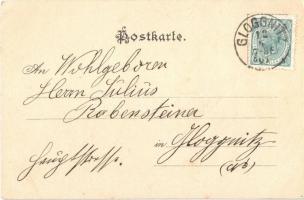 Postkarte.
GLOGGNITZ
An Wohlgeboren
Herrn Julius
Rabensteiner
in Gloggnitz
Hauptstrasse.